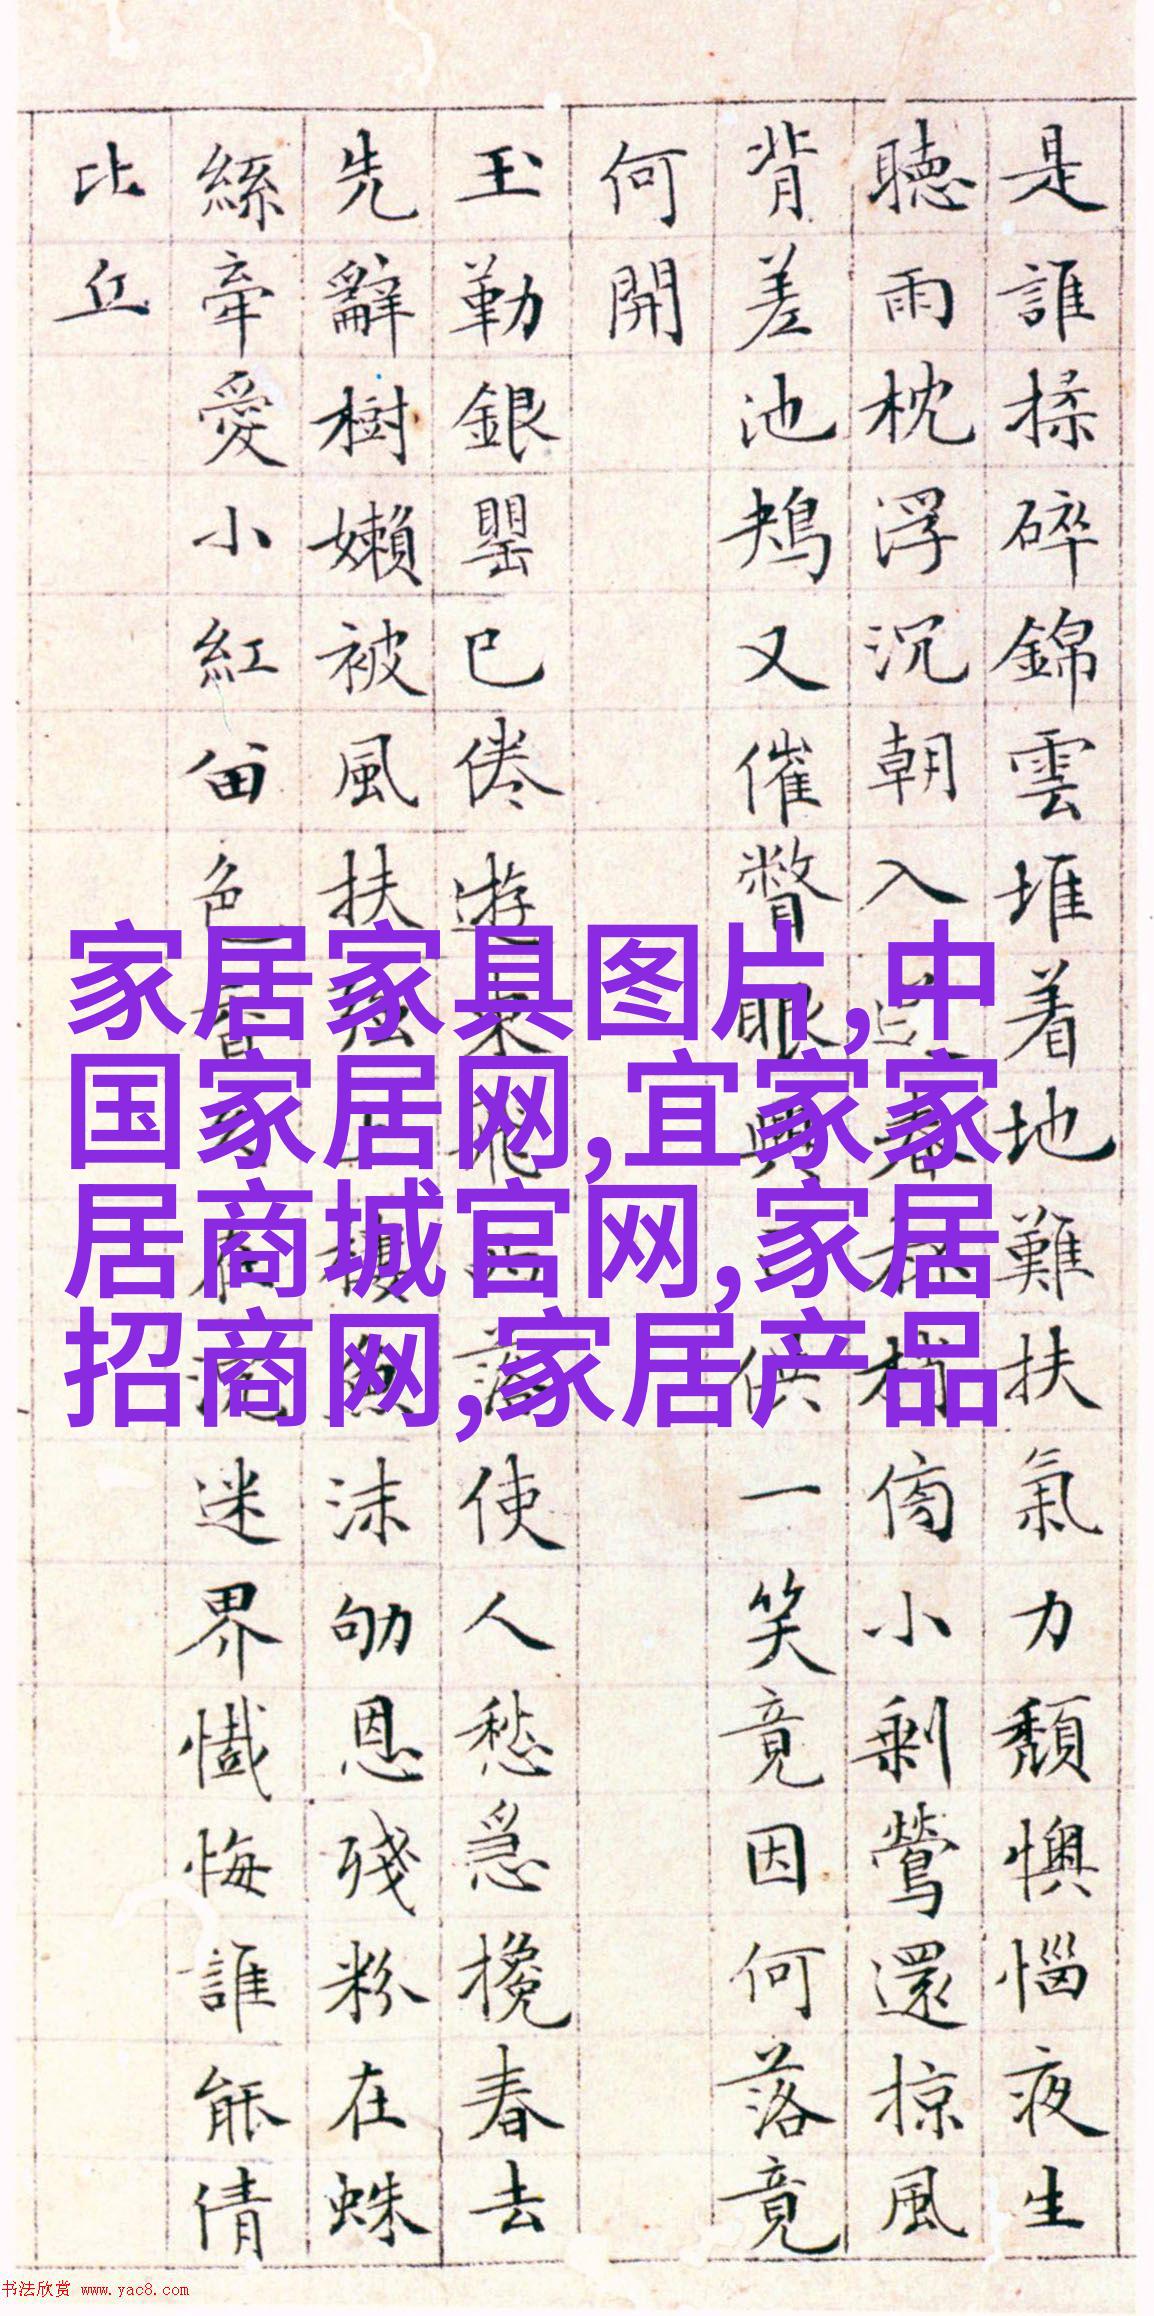 是誰揉碎錦雲堆着地難扶氣力頹懊惱夜生
聽雨枕浮沉朝入春林梢傍小剩鶯還掠風
背差池鳺又催瞥眼與供一笑竟因何落竟
何開
玉勒銀罌已倦遊東飛西落使人愁急攙春去
先辭樹嬾被風扶強上樓魚沫劬恩殘粉在蛛
絲牽愛小紅留色香久在沉迷界懺悔誰能倩
比丘
家居家具图片,中
国家居网,宜家家
居商城官网,家居
招商网,家居产品
书法欣赏 www.yac8.com